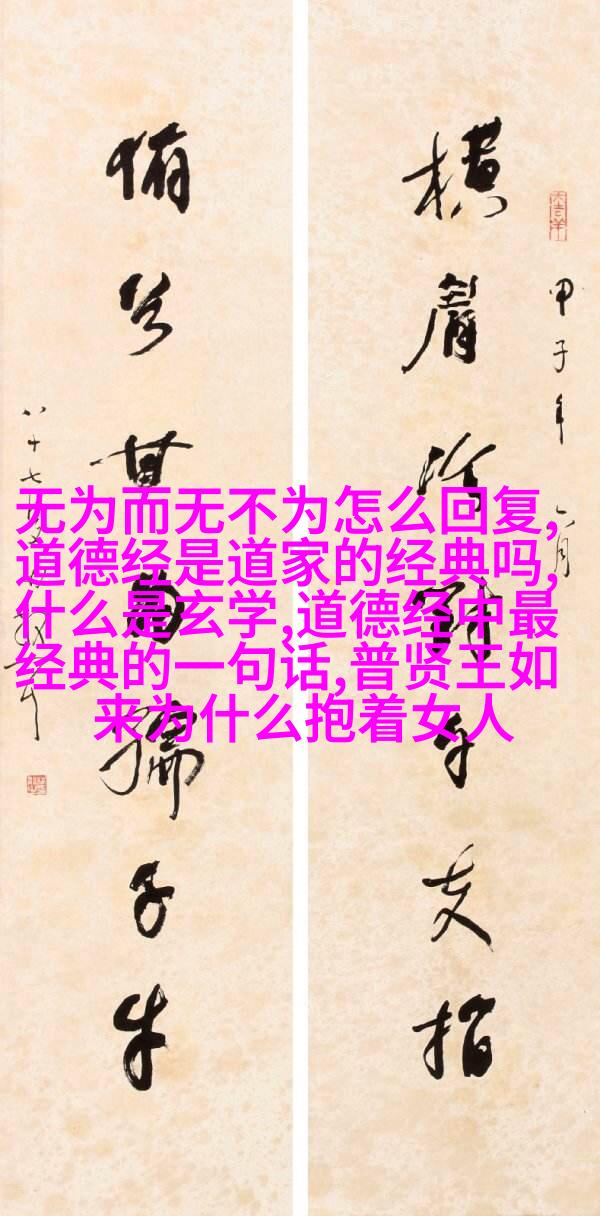 甲子年
横眉冷對千夫指
俯首甘为孺子牛
八十七
无为而无不为怎么回复,
道德经是道家的经典吗,
什么是玄学,道德经中最
经典的一句话,普贤王如
来为什么抱着女人